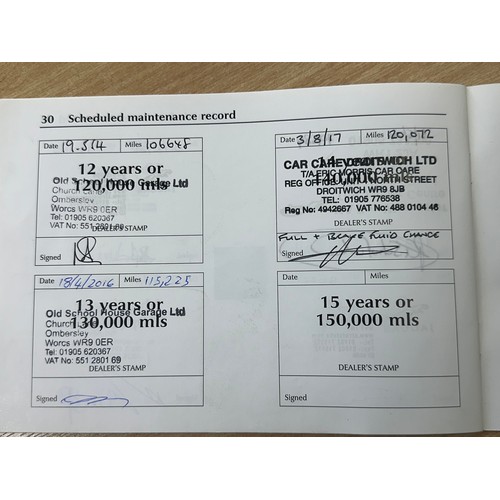 30 Scheduled maintenance record
Date 19.5.14 Miles 106648
12 years or
Old School House Garage Ltd
120,000 mls
Church Lane
Ombersley
Worcs WR9 0ER
Tel: 01905 620367
VAT No: 551 2801 69
DEALER'S STAMP
Signed
Date 18/4/2016 Miles 115,225
13 years or
Old School House Garage Ltd
130,000 mls
Church
Ombersley
Worcs WR9 0ER
Tel: 01905 620367
VAT No: 551 2801 69
DEALER'S STAMP
Signed
Date 3/8/17 Miles 120,072
14 years or
CAR CARE DROITWICH LTD
T/A ERIC MORRIS CAR CARE
140,000 mls
REG OFFICE: UNIT NORTH STREET
DROITWICH WR9 8JB
TEL: 01905 776538
Reg No: 4942667 VAT No: 488 0104 46
DEALER'S STAMP
FULL + BRAKE FLUID CHANGE
Signed
Date Miles
15 years or
150,000 mls
DEALER'S STAMP
Signed